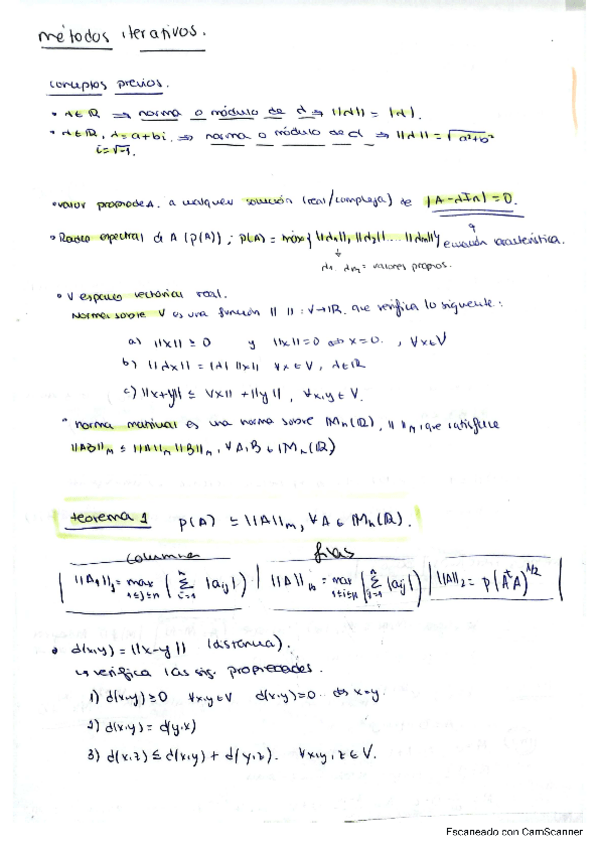 métodos iterativos.
conceptos previos.
• d ∈ ℝ ⇒ norma o módulo de d ⇒ ||d|| = |d|.
• d ∈ ℝ, d = a+bi, ⇒ norma o módulo de d ⇒ ||d|| = √a²+b²
i = √-1.
• valor propio de A. a cualquier solución (real/compleja) de |A-dIn| = 0.
• Radio espectral de A (ρ(A)); ρ(A) = máx{||d1||, ||d2|| ... ||dm||} ecuación característica.
d1, dm = valores propios.
• V espacio vectorial real.
Norma sobre V es una función || || : V→ℝ, que verifica lo siguiente:
a) ||x|| ≥ 0 y ||x|| = 0 ⇔ x = 0. , ∀x∈V
b) ||dx|| = |d| ||x|| ∀x ∈ V, d∈ℝ
c) ||x+y|| ≤ ||x|| + ||y||, ∀x,y ∈ V.
• norma matricial es una norma sobre Mn(ℝ), || ||m, que satisface
||AB||m ≤ ||A||m ||B||m, ∀A,B ∈ Mn(ℝ)
teorema 1 ρ(A) ≤ ||A||m, ∀A ∈ Mn(ℝ).
columna filas
||A||1 = max 1≤j≤n (∑ i=1 n |aij|) | ||A||∞ = max 1≤i≤n (∑ j=1 n |aij|) | ||A||2 = ρ(AᵗA)^1/2
• d(x,y) = ||x-y|| (distancia).
↳ verifica las sig. propiedades.
1) d(x,y) ≥ 0 ∀x,y ∈ V d(x,y) = 0 ⇔ x=y.
2) d(x,y) = d(y,x)
3) d(x,z) ≤ d(x,y) + d(y,z). ∀x,y,z ∈ V.
Escaneado con CamScanner